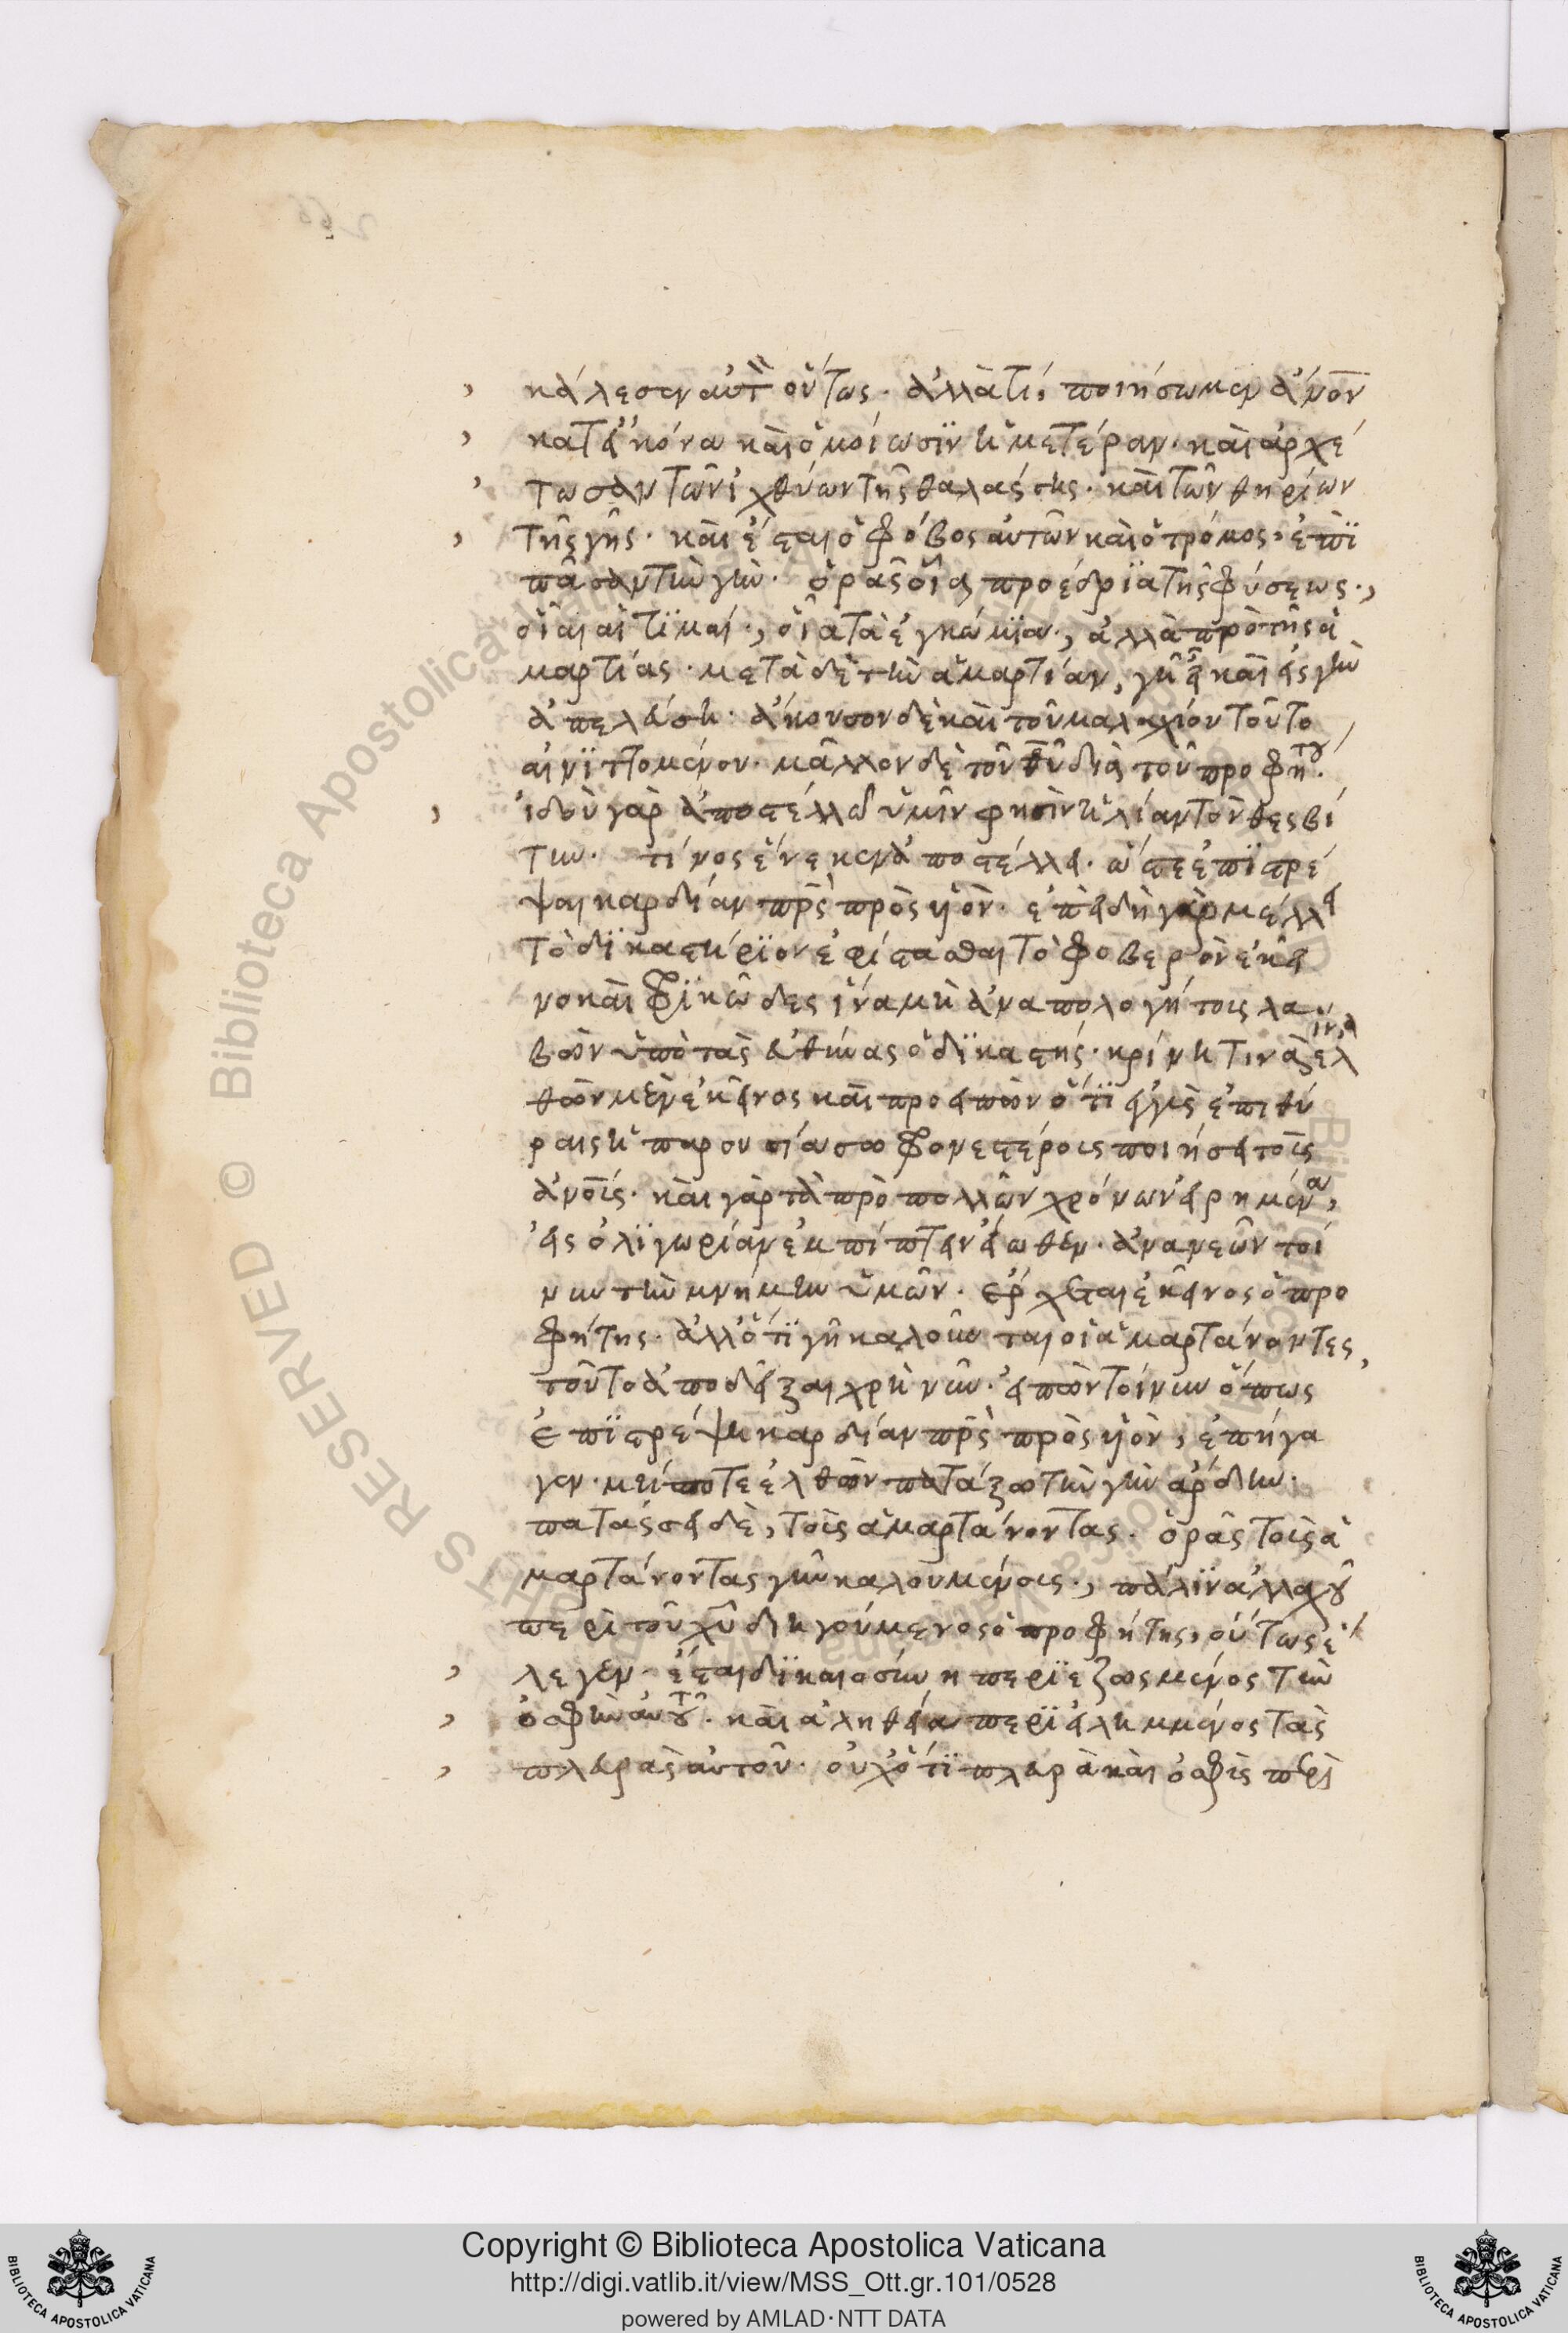 κάλεσεν αὐτὸν οὕτως· ἀλλὰ τί, ποιήσωμεν ἄνον
κατ εἰκόνα καὶ ὁμοίωσιν ἡμετέραν· καὶ ἀρχέ
τωσαν τῶν ἰχθύων τῆς θαλάσσης· καὶ τῶν θηρίων
τῆς γῆς· καὶ ἔσται ὁ φόβος αὐτῶν καὶ ὁ τρόμος· ἐπὶ
πᾶσαν τὴν γῆν· ὁρᾶς οἵα προεδρία τῆς φύσεως·,
οἷαι αἱ τιμαί·, οἷα τὰ ἐγκώμια·, ἀλλὰ πρὸ τῆς ἁ
μαρτίας· μετὰ δὲ τὴν ἁμαρτίαν, γῆ εἶ καὶ εἰς γῆν
ἀπελεύση· ἄκουσον δὲ καὶ τοῦ μαλαχίου τοῦτο
αἰνιττομένου· μᾶλλον δὲ τοῦ θῦ διὰ τοῦ προφήτου·
ἰδοὺ γὰρ ἀποστέλλω ὑμῖν φησὶν ἡλίαν τὸν θεσβί
την· τίνος ἕνεκεν ἀποστέλλει· ὥστε ἐπιστρέ
ψαι καρδίαν πρς πρὸς υἱὸν· ἐπειδὴ γὰρ μέλλει
τὸ δικαστήριον ἐφίστασθαι τὸ φοβερὸν ἐκεῖ
νο καὶ φρικῶδες ἵνα μὴ ἀναπολογήτοις λα
βὼν ὑπὸ τὰς εὐθύνας ὁ δικαστής· κρίνη τινὰς ἵνα ἐλ
θὼν μὲν ἐκεῖνος καὶ προειπὼν ὅτι ἐγγὺς ἐπὶ θύ
ραις ἡ παρουσία σωφρονεστέροις ποιήσει τοῖς
ἀνοῖς· καὶ γὰρ τὰ πρὸ πολλῶν χρόνων εἰρημένα,
εἰς ὀλιγωρίαν ἐκπίπτειν εἴωθεν· ἀνανεῶν τοί
νυν τὴν μνήμην ὑμῶν· ἔρχεται ἐκεῖνος ὁ προ
φήτης· ἀλλ ὅτι γῆ καλοῦνται οἱ ἁμαρτάνοντες,
τοῦτο ἀποδεῖξαι χρὴ νῦν· εἰπὼν τοίνυν ὅπως
ἐπιστρέψη καρδίαν πρς πρὸς υἱὸν, ἐπήγα
γεν· μήποτε ἐλθὼν πατάξω τὴν γῆν ἄρδην·
πατάσσει δὲ, τοὶς ἁμαρτάνοντας· ὁρᾶς τοὶς ἁ
μαρτάνοντας γῆν καλουμένοις·, πάλιν ἀλλαχοῦ
περὶ τοῦ χῦ διηγούμενος ὁ προφήτης, οὕτως ἔ
λεγεν· ἔσται δικαιοσύνη περιεζωσμένος τὴν
ὀσφὺν αὐτοῦ· καὶ ἀληθεία περιειλημμένος τὰς
πλευρὰς αὐτοῦ· οὐχ ὅτι πλευρὰ καὶ ὀσφὺς περὶ
Copyright © Biblioteca Apostolica Vaticana
http://digi.vatlib.it/view/MSS_Ott.gr.101/0528
powered by AMLAD·NTT DATA